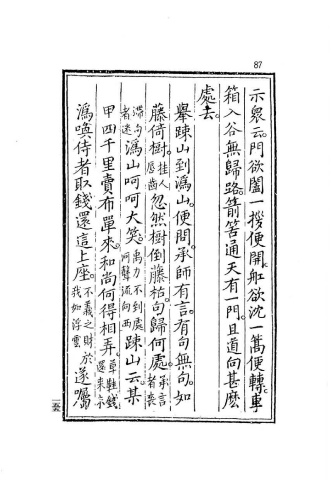 87
示衆云。門欲闔一拶便開。舡欲沈一篙便轉。車
箱入谷無歸路。箭筈通天有一門。且道向甚麽
處去。
擧踈山到潙山。便問。承師有言。有句無句。如
藤倚樹。挂人唇齒忽然樹倒藤枯。句歸何處。承言者喪
滯句者迷潙山呵呵大笑。禹力不到處河聲流向西踈山云。某
甲四千里賣布單來。和尚何得相弄。草鞋錢還來示
潙喚侍者。取錢還這上座。不義之財於我如浮雲遂囑